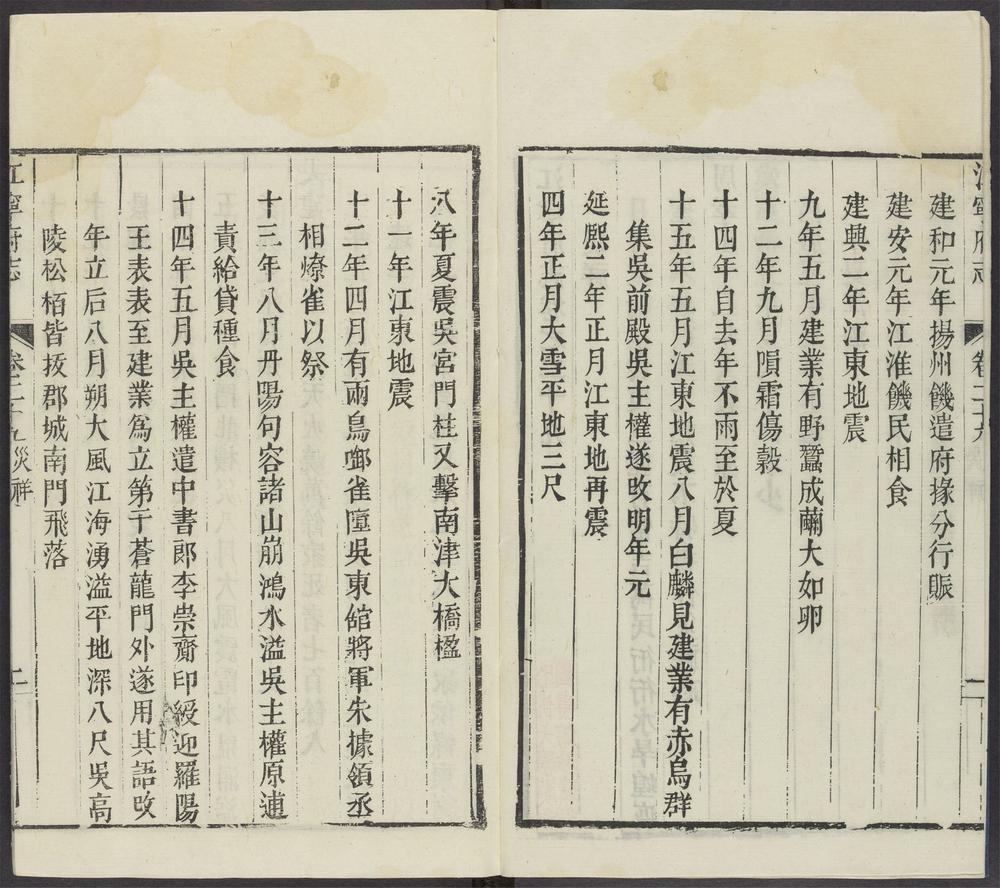 建和元年揚州饑遣府掾分行賑
建安元年江淮饑民相食
建興二年江東地震
九年五月建業有野蠶成繭大如卵
十二年九月隕霜傷穀
十四年自去年不雨至於夏
十五年五月江東地震八月白麟見建業有赤烏群
集吳前殿吳主權遂改明年元
延熙二年正月江東地再震
四年正月大雪平地三尺
八年夏震吳宮門柱又擊南津大橋楹
十一年江東地震
十二年四月有兩烏啣雀墮吳東館將軍朱據領丞
相燎雀以祭
十三年八月丹陽句容諸山崩鴻水溢吳主權原逋
責給貸種食
十四年五月吳主權遣中書郎李崇齎印綬迎羅陽
王表表至建業為立第于蒼龍門外遂用其語改
年立后八月朔大風江海湧溢平地深八尺吳高
陵松栢皆拔郡城南門飛落
江寧府志
卷二十九災祥
二